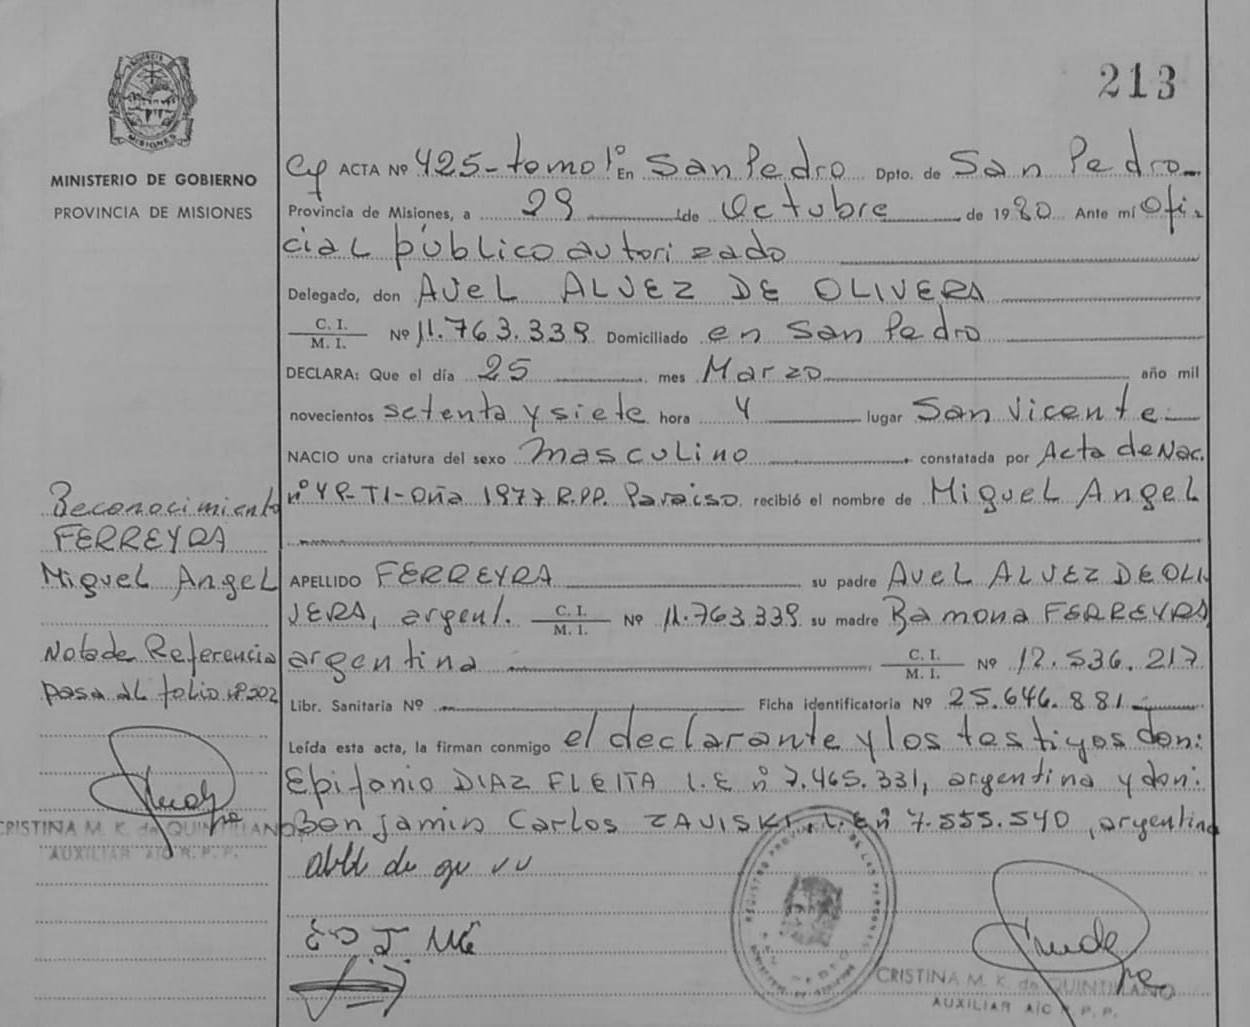 213
MINISTERIO DE GOBIERNO
PROVINCIA DE MISIONES
ACTA Nº 425-tomo 1º En San Pedro Dpto. de San Pedro
Provincia de Misiones, a 29 de Octubre de 1980 Ante mi Ofi
cial público autorizado
Delegado, don AVEL ALVEZ DE OLIVERA
C. I.
M. I. Nº 11.763.339 Domiciliado en San Pedro
DECLARA: Que el día 25 mes Marzo año mil
novecientos setenta y siete hora 4 lugar San Vicente
NACIO una criatura del sexo masculino constatada por Acta de Nac.
R.P.P. Paraiso recibió el nombre de Miguel Angel
APELLIDO FERREYRA su padre AVEL ALVEZ DE OLI
VERA, argent. C. I. / M. I. Nº 11.763.339 su madre Ramona FERREYRA
argentina C. I. / M. I. Nº 12.536.217
Libr. Sanitaria Nº Ficha identificatoria Nº 25.646.881
Leída esta acta, la firman conmigo el declarante y los testigos don:
Epifanio DIAZ FLEITA L.E nº 7.465.331, argentino y don:
Benjamin Carlos ZAVISKI, L.E nº 7.555.540, argentino
Reconocimiento
FERREYRA
Miguel Angel
Nota de Referencia
pasa al folio nº 202
CRISTINA M. K. de QUINTILIANO
AUXILIAR A/C R. P. P.
CRISTINA M. K. de QUINTILIANO
AUXILIAR A/C R. P. P.